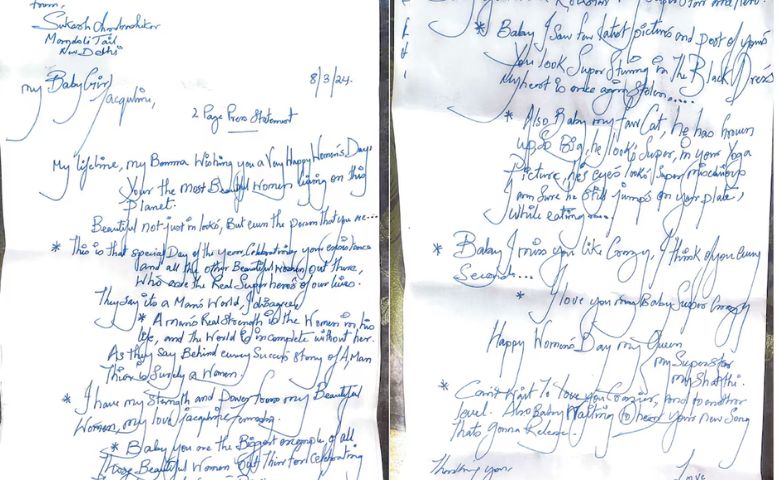 from,
Sukash Chandrashekar
Mandoli Jail
New Delhi
My Baby Girl
Jacqueline,
8/3/24.
2 Page Press Statement
My lifetime, my Bomma Wishing you a Very Happy Women's Day.
Your the most Beautiful Women living on this
Planet.
Beautiful not just in looks, But even the person that you are...
* This is that special Day of the year, Celebrating your existence
and all the other Beautiful Women, out there,
Who are the Real Super hero's of our lives.
They say its a Man's World, I disagree
* A man's Real Strength is the Women in his
life, and the World is incomplete without her.
As they say Behind every Success Story of A Man
There is Surely a Women.
* I have my Strength and Power from my Beautiful
Women, my love Jacqueline Fernandez.
* Baby you are the Biggest example of all
These Beautiful Women out there for Celebrating
* Baby I saw few latest pictures and post of yours
You look Super Stunning in the Black Dress
My heart is once again stolen....
* Also Baby my fav Cat, he has
up so Big, he looks Super, in your Yoga
Picture, his eyes looks Super
I am Sure he still jumps on your plate,
While eating....
* Baby I miss you like Crazy, I think of you every
Second...
* I love you my Baby Super Crazy
Happy Women's Day my Queen
my Superstar
my Shakthi.
* Can't Wait To love you Crazier, and to another
level. Also Baby Waiting to hear your new Song
Thats gonna Release.
Thinking you
Love